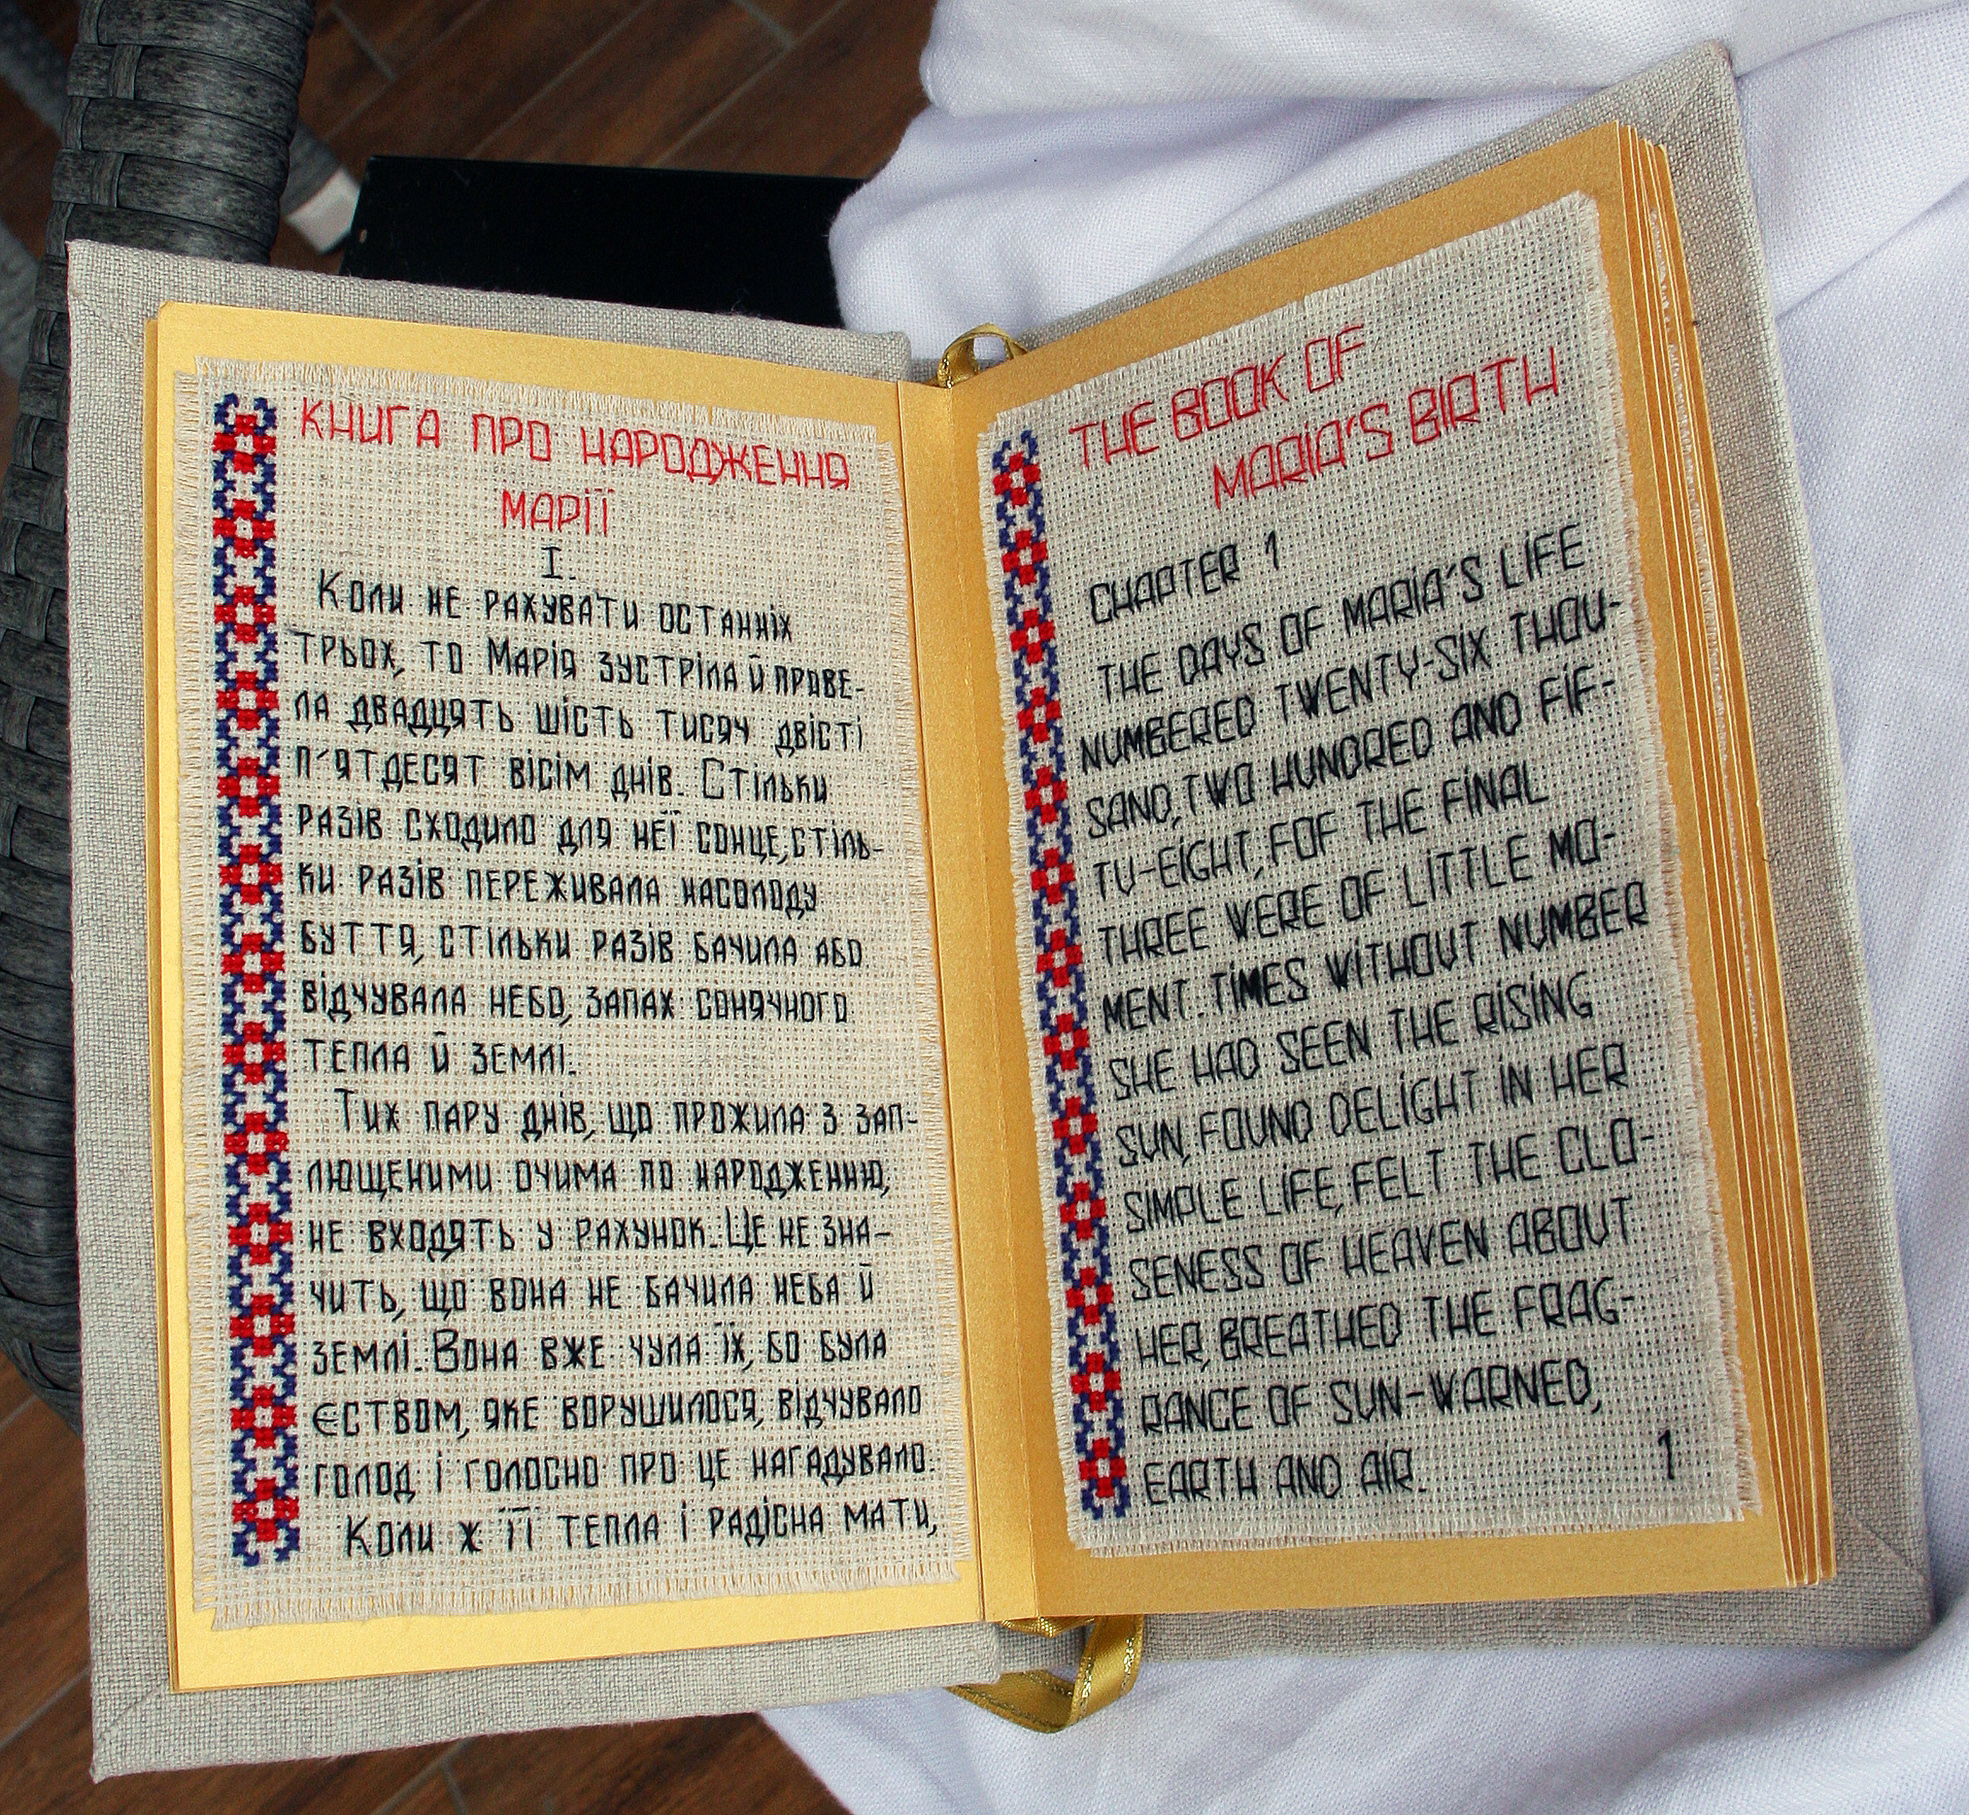 КНИГА ПРО НАРОДЖЕННЯ
МАРІЇ
І.
Коли не рахувати останніх
трьох, то Марія зустріла й прове-
ла двадцять шість тисяч двісті
п'ятдесят вісім днів. Стільки
разів сходило для неї сонце, стіль-
ки разів переживала насолоду
буття, стільки разів бачила або
відчувала небо, запах сонячного
тепла й землі.
Тих пару днів, що прожила з зап-
лющеними очима по народженню,
не входять у рахунок. Це не зна-
чить, що вона не бачила неба й
землі. Вона вже чула їх, бо була
єством, яке ворушилося, відчувало
голод і голосно про це нагадувало.
Коли ж її тепла і радісна мати,
THE BOOK OF
MARIA'S BIRTH
CHAPTER 1
THE DAYS OF MARIA'S LIFE
NUMBERED TWENTY-SIX THOU-
SAND, TWO HUNDRED AND FIF-
TY-EIGHT, FOF THE FINAL
THREE WERE OF LITTLE MO-
MENT. TIMES WITHOUT NUMBER
SHE HAD SEEN THE RISING
SUN, FOUND DELIGHT IN HER
SIMPLE LIFE, FELT THE CLO-
SENESS OF HEAVEN ABOUT
HER, BREATHED THE FRAG-
RANCE OF SUN-WARNED,
EARTH AND AIR.
1